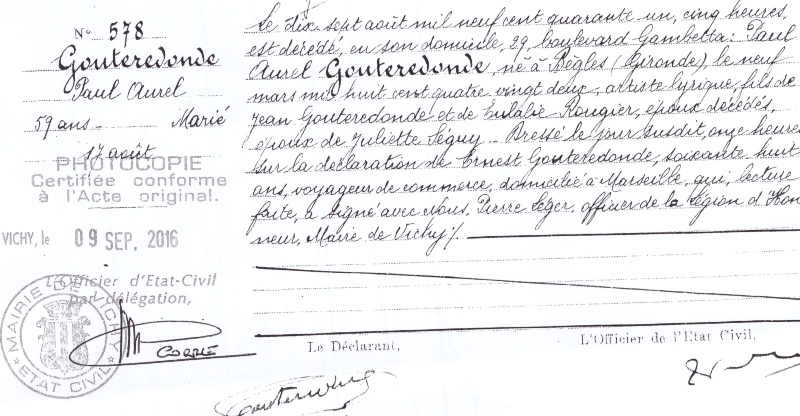 N° 578
Gouteredonde
Paul Aurel
59 ans - Marié
17 août
PHOTOCOPIE
Certifiée conforme
à l'Acte original.
VICHY, le 09 SEP. 2016
L'Officier d'Etat-Civil
par délégation,
MAIRIE DE VICHY
* ETAT CIVIL *
CORRE
Le dix sept août mil neuf cent quarante un, cinq heures,
est décédé, en son domicile, 29, boulevard Gambetta: Paul
Aurel Gouteredonde, né à Bègles (Gironde), le neuf
mars mil huit cent quatre vingt deux, artiste lyrique, fils de
Jean Gouteredonde et de Eulalie Rougier, époux décédés,
époux de Juliette Séguy - Dressé le jour susdit, onze heures
sur la déclaration de Ernest Gouteredonde, soixante huit
ans, voyageur de commerce, domicilié à Marseille, qui, lecture
faite, a signé avec Nous, Pierre Léger, officier de la Légion d'Hon
neur, Maire de Vichy ./.
Le Déclarant,
L'Officier de l'Etat Civil,